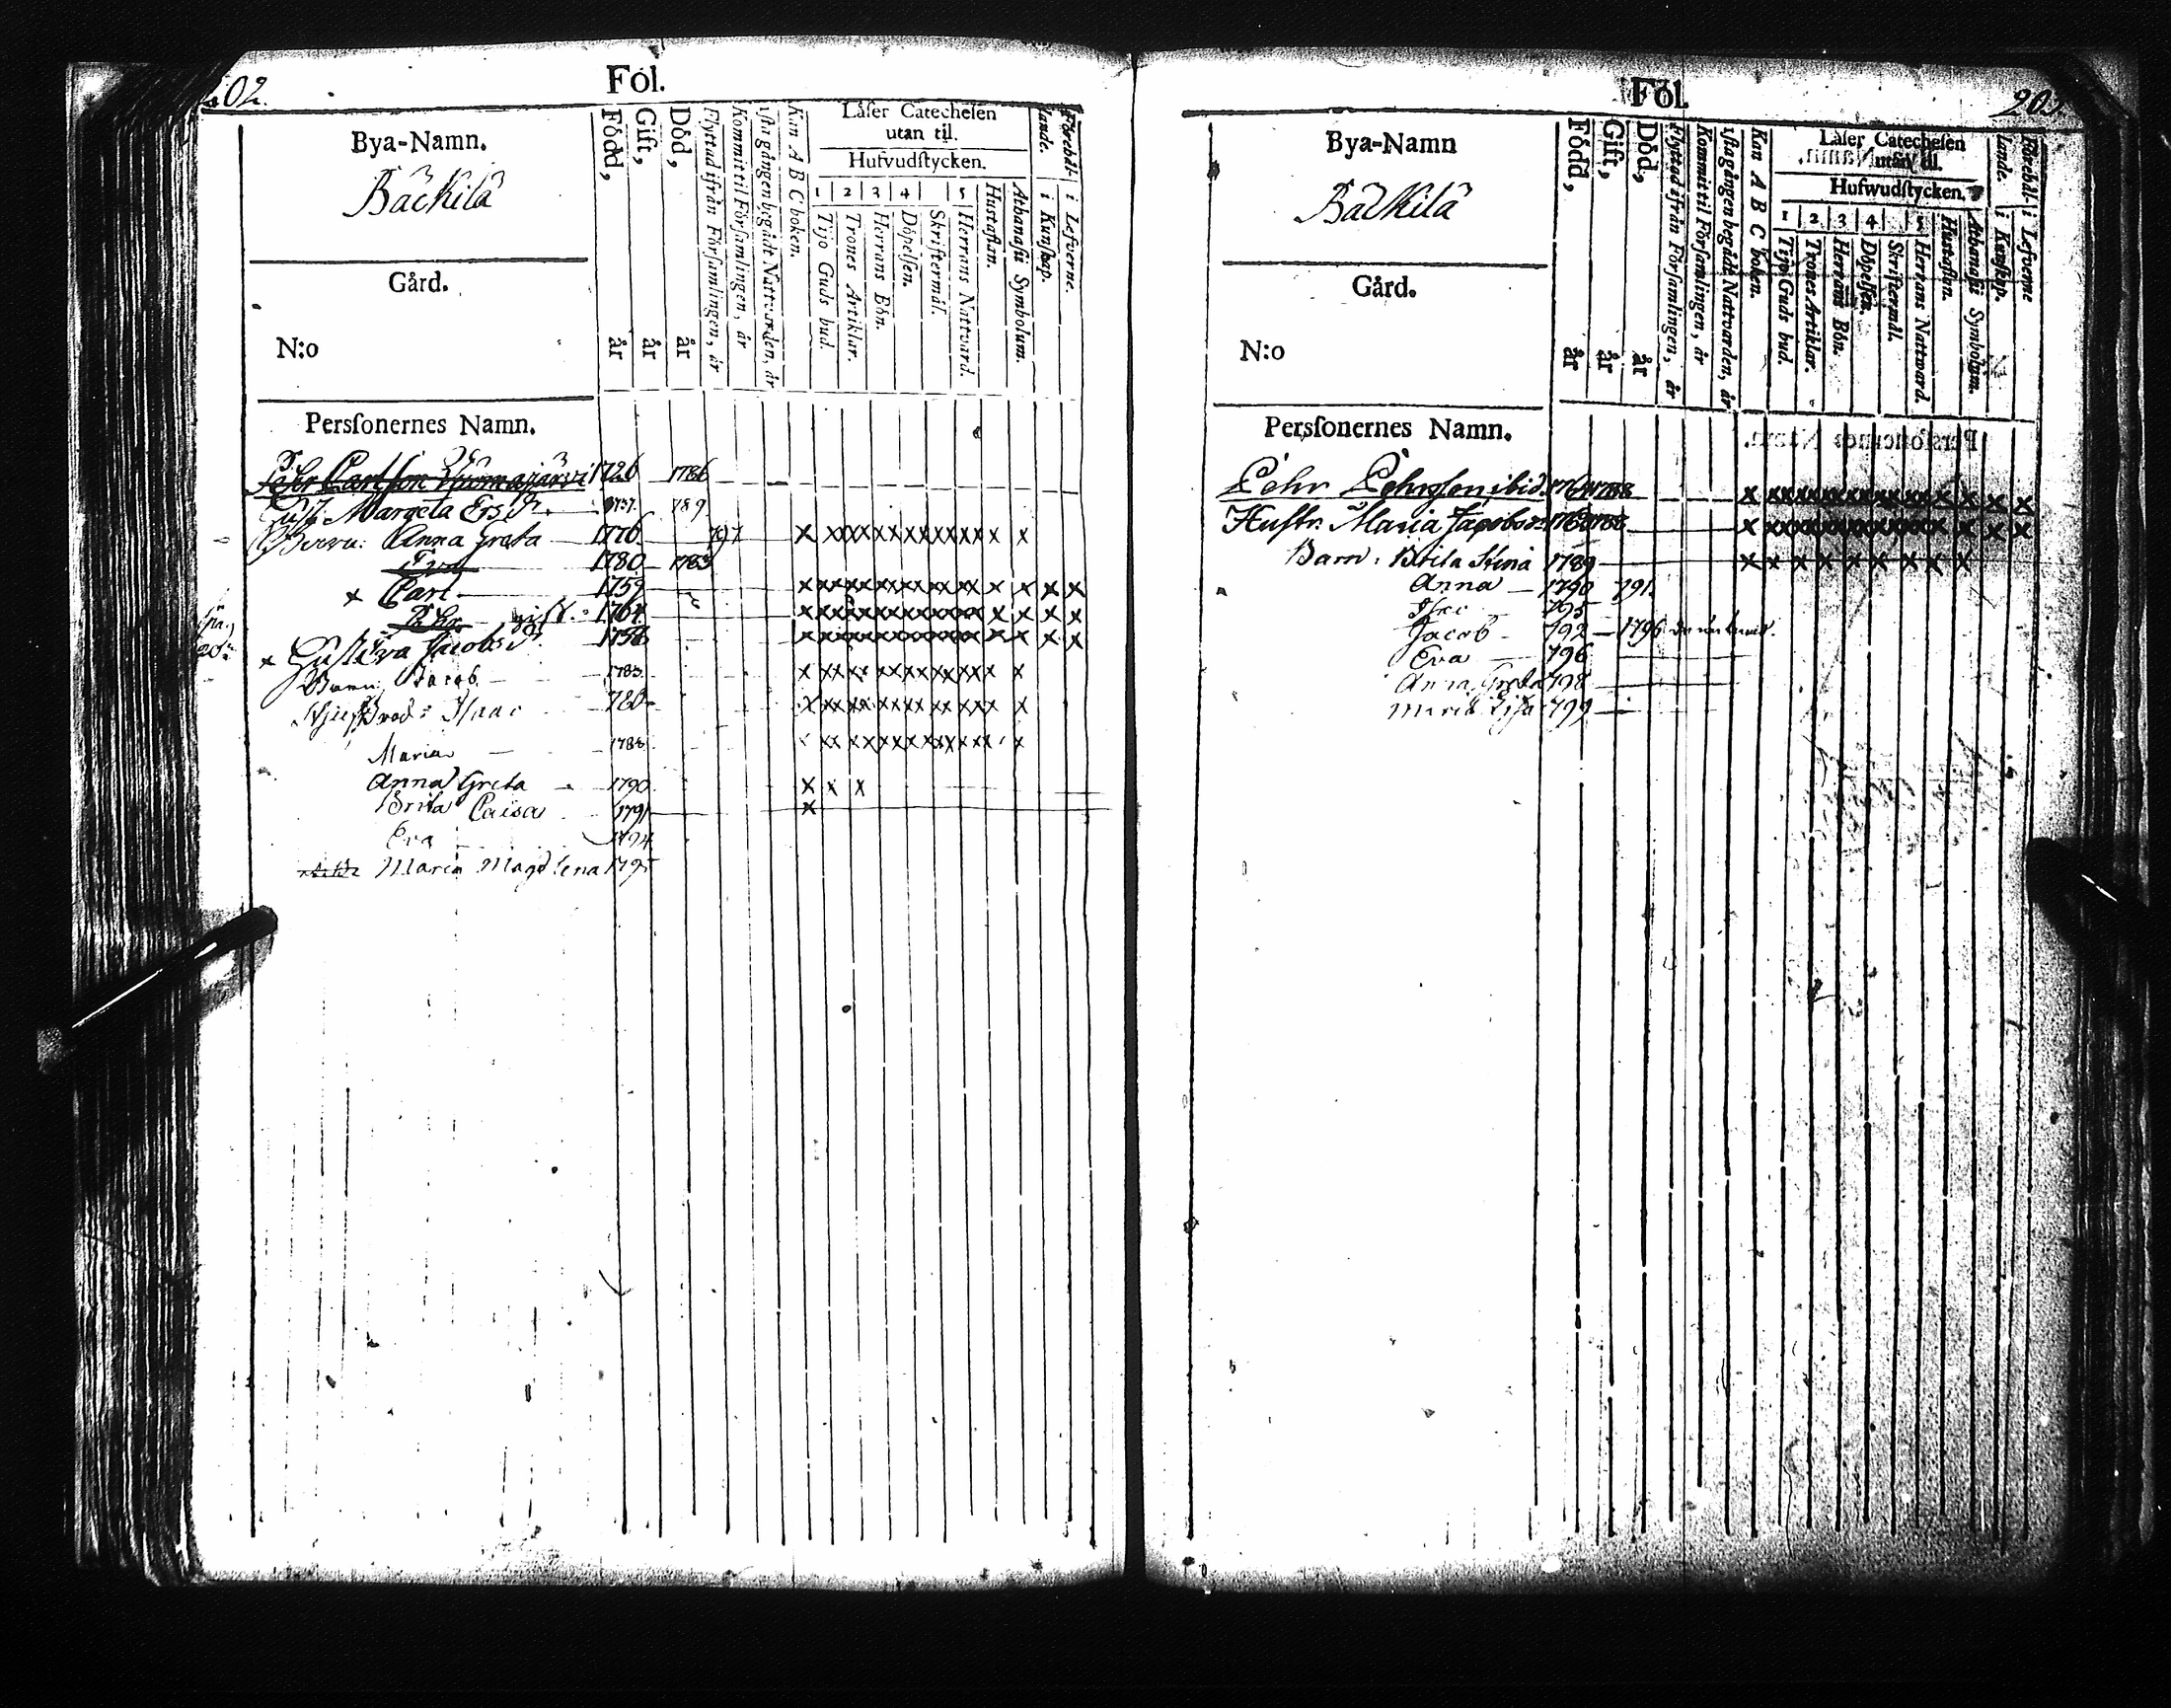 202.
Föl.
Bya-Namn.
Bäckilä
Gård.
N:o
Född, år
Gift, år
Död, år
Flyttad ifrån Församlingen, år
Kommit til Församlingen, år
1sta gången begådt Nattvarden, år
Kan A B C boken.
Läser Catechesen
utan til.
Hufvudstycken.
1 2 3 4 5
Tijo Guds bud.
Trones Artiklar.
Herrans Bön.
Döpelsen.
Skriftermål.
Herrans Nattvard.
Hustaflan.
Athanasii Symbolum.
Förehållande.
i Kunskap.
i Lefverne.
Persſonernes Namn.
Pehr Carlsson 1726 1786
Hust. Margeta Ers D:r 1737 789
Barn: Anna Greta 1776 797 x x x x x x x x x x x x x
1780 1783
x Carl 1759 x x x x x x x x x x x x x x x
Pehr gift. 1764 x x x x x x x x x x x x x x x
x Hust Eva Jacobs D:r 1758 x x x x x x x x x x x x x x x
Barn: Jacob 1783 x x x x x x x x x x x x x
Isaac 780 x x x x x x x x x x x x x
Maria 1788 x x x x x x x x x x x x
Anna Greta 1790 x x x
Brita Caisa 1791 x
Eva 1794
Maria Magdlena 1795
Föl.
203
Bya-Namn
Bäckilä
Gård.
N:o
Född, år
Gift, år
Död, år
Flyttad ifrån Församlingen, år
Kommit til Församlingen, år
1sta gången begådt Nattvarden, år
Kan A B C boken.
Läser Catechesen
utan til.
Hufwudstycken.
1 2 3 4 5
Tijo Guds bud.
Trones Artiklar.
Herrans Bön.
Döpelsen.
Skriftermål.
Herrans Nattvard.
Hustaflan.
Athanasii Symbolum.
Förehållande.
i Kunskap.
i Lefverne
Persſonernes Namn.
Pehr Pehrsson ibid. 1764 1788 x x x x x x x x x x x x x x x
Hustr. Maria Jacobs 1788 x x x x x x x x x x x x x x x
Barn: Brita Stina 1789 x x x x x x x x x
Anna 1790 791.
795
Jacob 792 1796
Eva 796
Anna Greta 798
Maria Lisa 799